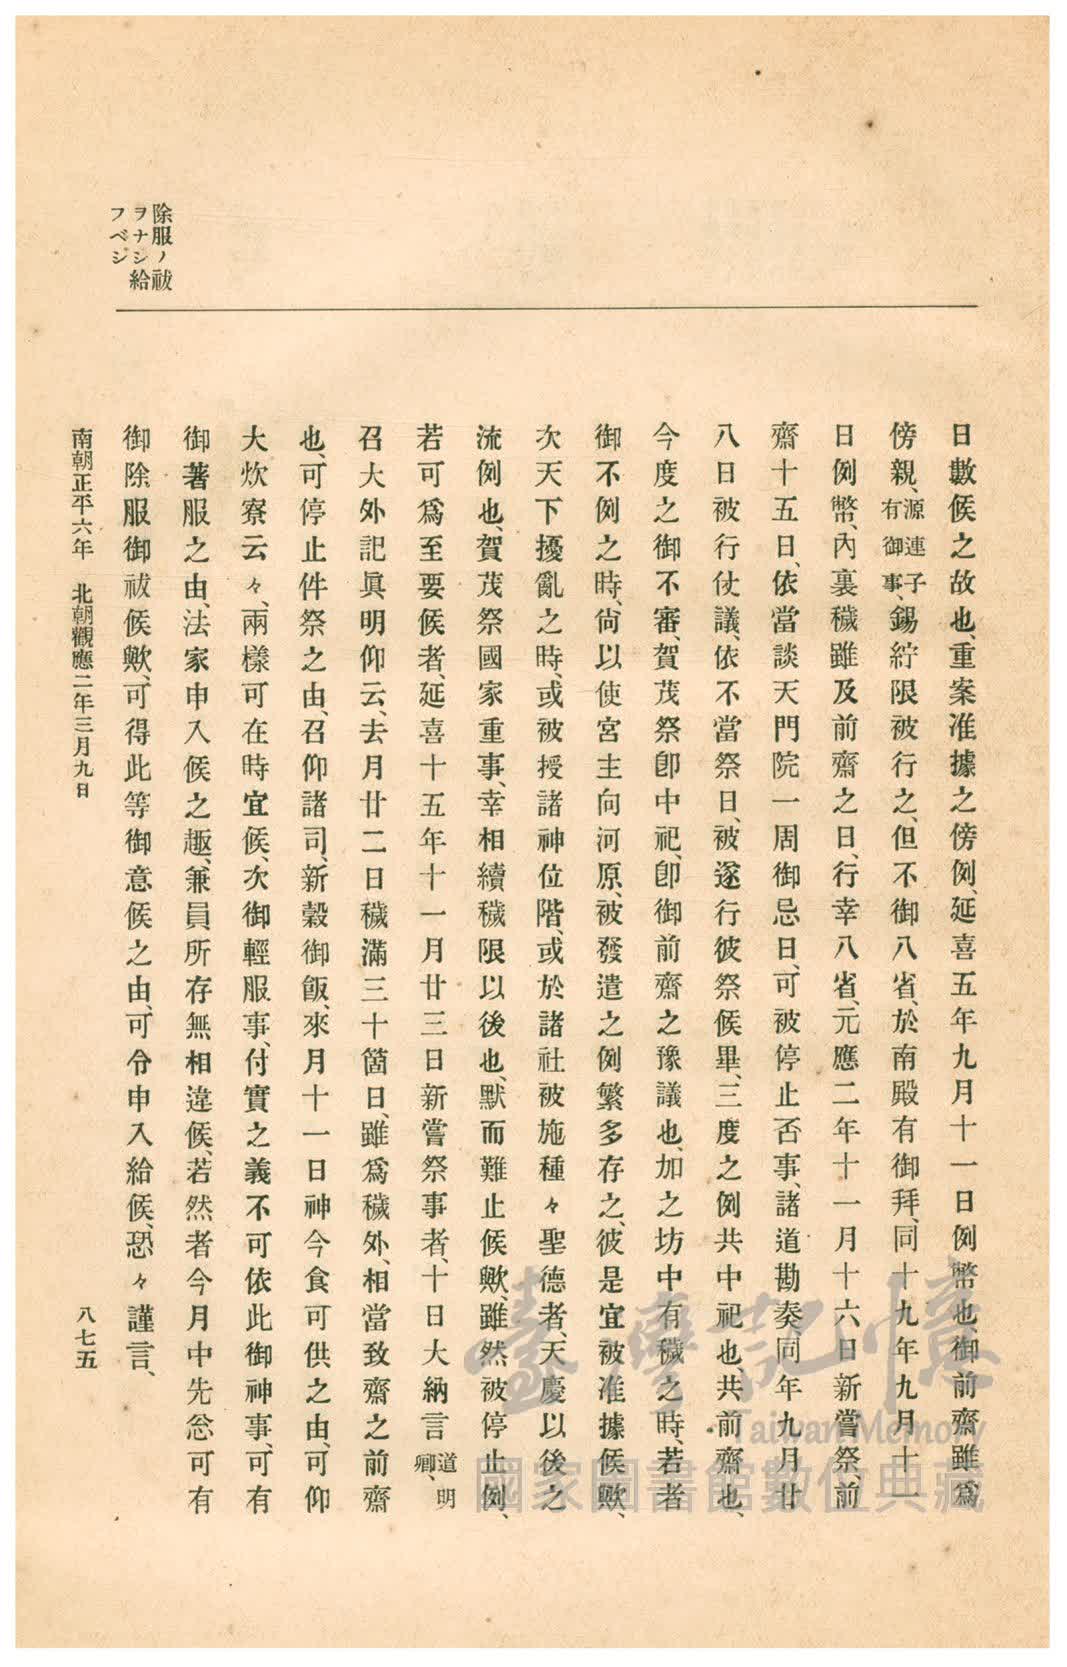 除服ノ祓
ヲナシ給
フベシ
日數候之故也、重案准據之傍例、延喜五年九月十一日例幣也、御前齋雖爲
傍親、源連子有御事、錫紵限被行之、但不御八省、於南殿有御拜、同十九年九月十一
日例幣、內裏穢雖及前齋之日、行幸八省、元應二年十一月十六日新嘗祭、前
齋十五日、依當談天門院一周御忌日、可被停止否事、諸道勘奏同年九月廿
八日被行仗議、依不當祭日、被遂行彼祭候畢、三度之例共中祀也、共前齋也、
今度之御不審、賀茂祭卽中祀、卽御前齋之豫議也、加之坊中有穢之時、若者
御不例之時、尙以使宮主向河原、被發遣之例繁多存之、彼是宜被准據候歟、
次天下擾亂之時、或被授諸神位階、或於諸社被施種々聖德者、天慶以後之
流例也、賀茂祭國家重事、幸相續穢限以後也、默而難止候歟、雖然被停止例、
若可爲至要候者、延喜十五年十一月廿三日新嘗祭事者、十日大納言道明卿、
召大外記眞明仰云、去月廿二日穢滿三十箇日、雖爲穢外、相當致齋之前齋
也、可停止件祭之由、召仰諸司、新穀御飯、來月十一日神今食可供之由、可仰
大炊寮云々、兩樣可在時宜候、次御輕服事、付實之義不可依此御神事、可有
御著服之由、法家申入候之趣、兼員所存無相違候、若然者今月中先忩可有
御除服御祓候歟、可得此等御意候之由、可令申入給候、恐々謹言、
南朝正平六年　北朝觀應二年三月九日
八七五
臺灣記憶
Taiwan Memory
國家圖書館數位典藏